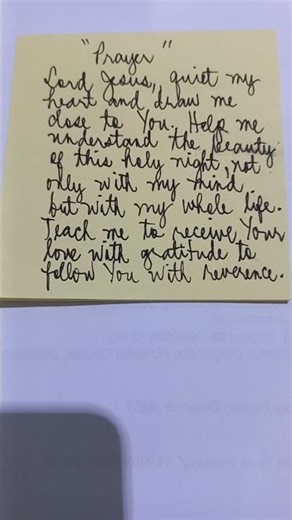 "Prayer"
Lord Jesus, quiet my
heart and draw me
close to You. Help me
understand the beauty
of this holy night, not
only with my mind,
but with my whole life.
Teach me to receive Your
love with gratitude to
follow You with reverence.